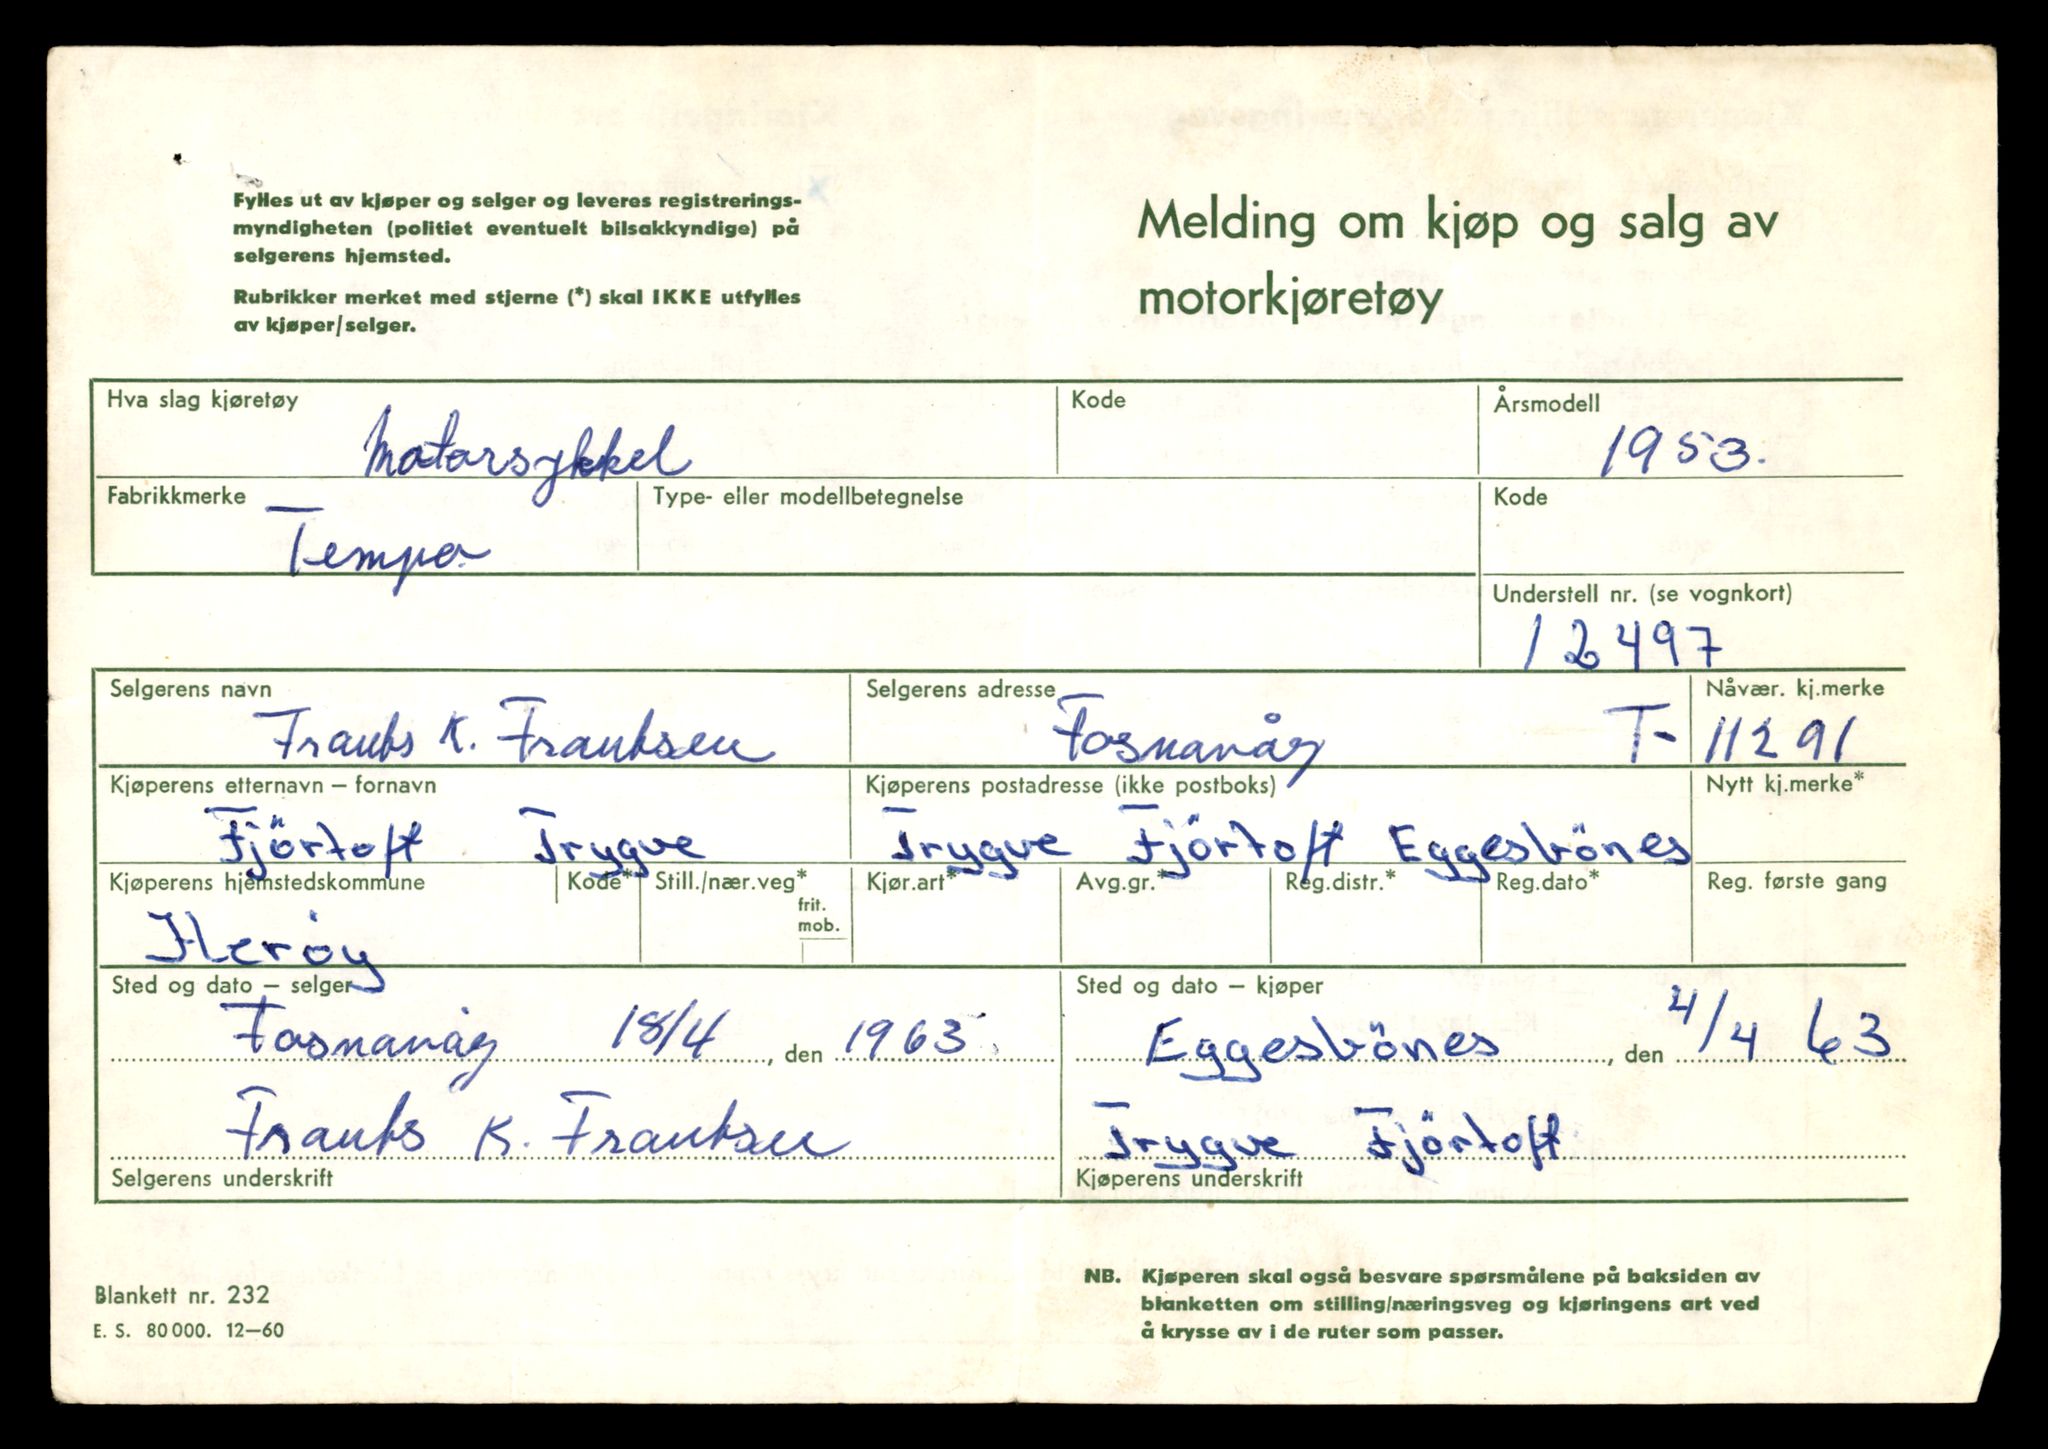 Fylles ut av kjøper og selger og leveres registrerings-
myndigheten (politiet eventuelt bilsakkyndige) på
selgerens hjemsted.
Rubrikker merket med stjerne (*) skal IKKE utfylles
av kjøper/selger.
Melding om kjøp og salg av
motorkjøretøy
Hva slag kjøretøy Kode Årsmodell
Motorsykkel 1953.
Fabrikkmerke Type- eller modellbetegnelse Kode
Tempo
Understell nr. (se vognkort)
12497
Selgerens navn Selgerens adresse Nåvær. kj.merke
Frants K. Frantsen Fosnavåg T- 11291
Kjøperens etternavn – fornavn Kjøperens postadresse (ikke postboks) Nytt kj.merke*
Fjörtoft Trygve Trygve Fjörtoft Eggesbönes
Kjøperens hjemstedskommune Kode* Still./nær.veg* Kjør.art* Avg.gr.* Reg.distr.* Reg.dato* Reg. første gang
frit.
mob.
Herøy
Sted og dato – selger Sted og dato – kjøper
Fosnavåg 18/4 , den 1963. Eggesbönes , den 4/4 63
Frants K. Frantsen Trygve Fjörtoft
Selgerens underskrift Kjøperens underskrift
Blankett nr. 232
E. S. 80 000. 12–60
NB. Kjøperen skal også besvare spørsmålene på baksiden av
blanketten om stilling/næringsveg og kjøringens art ved
å krysse av i de ruter som passer.